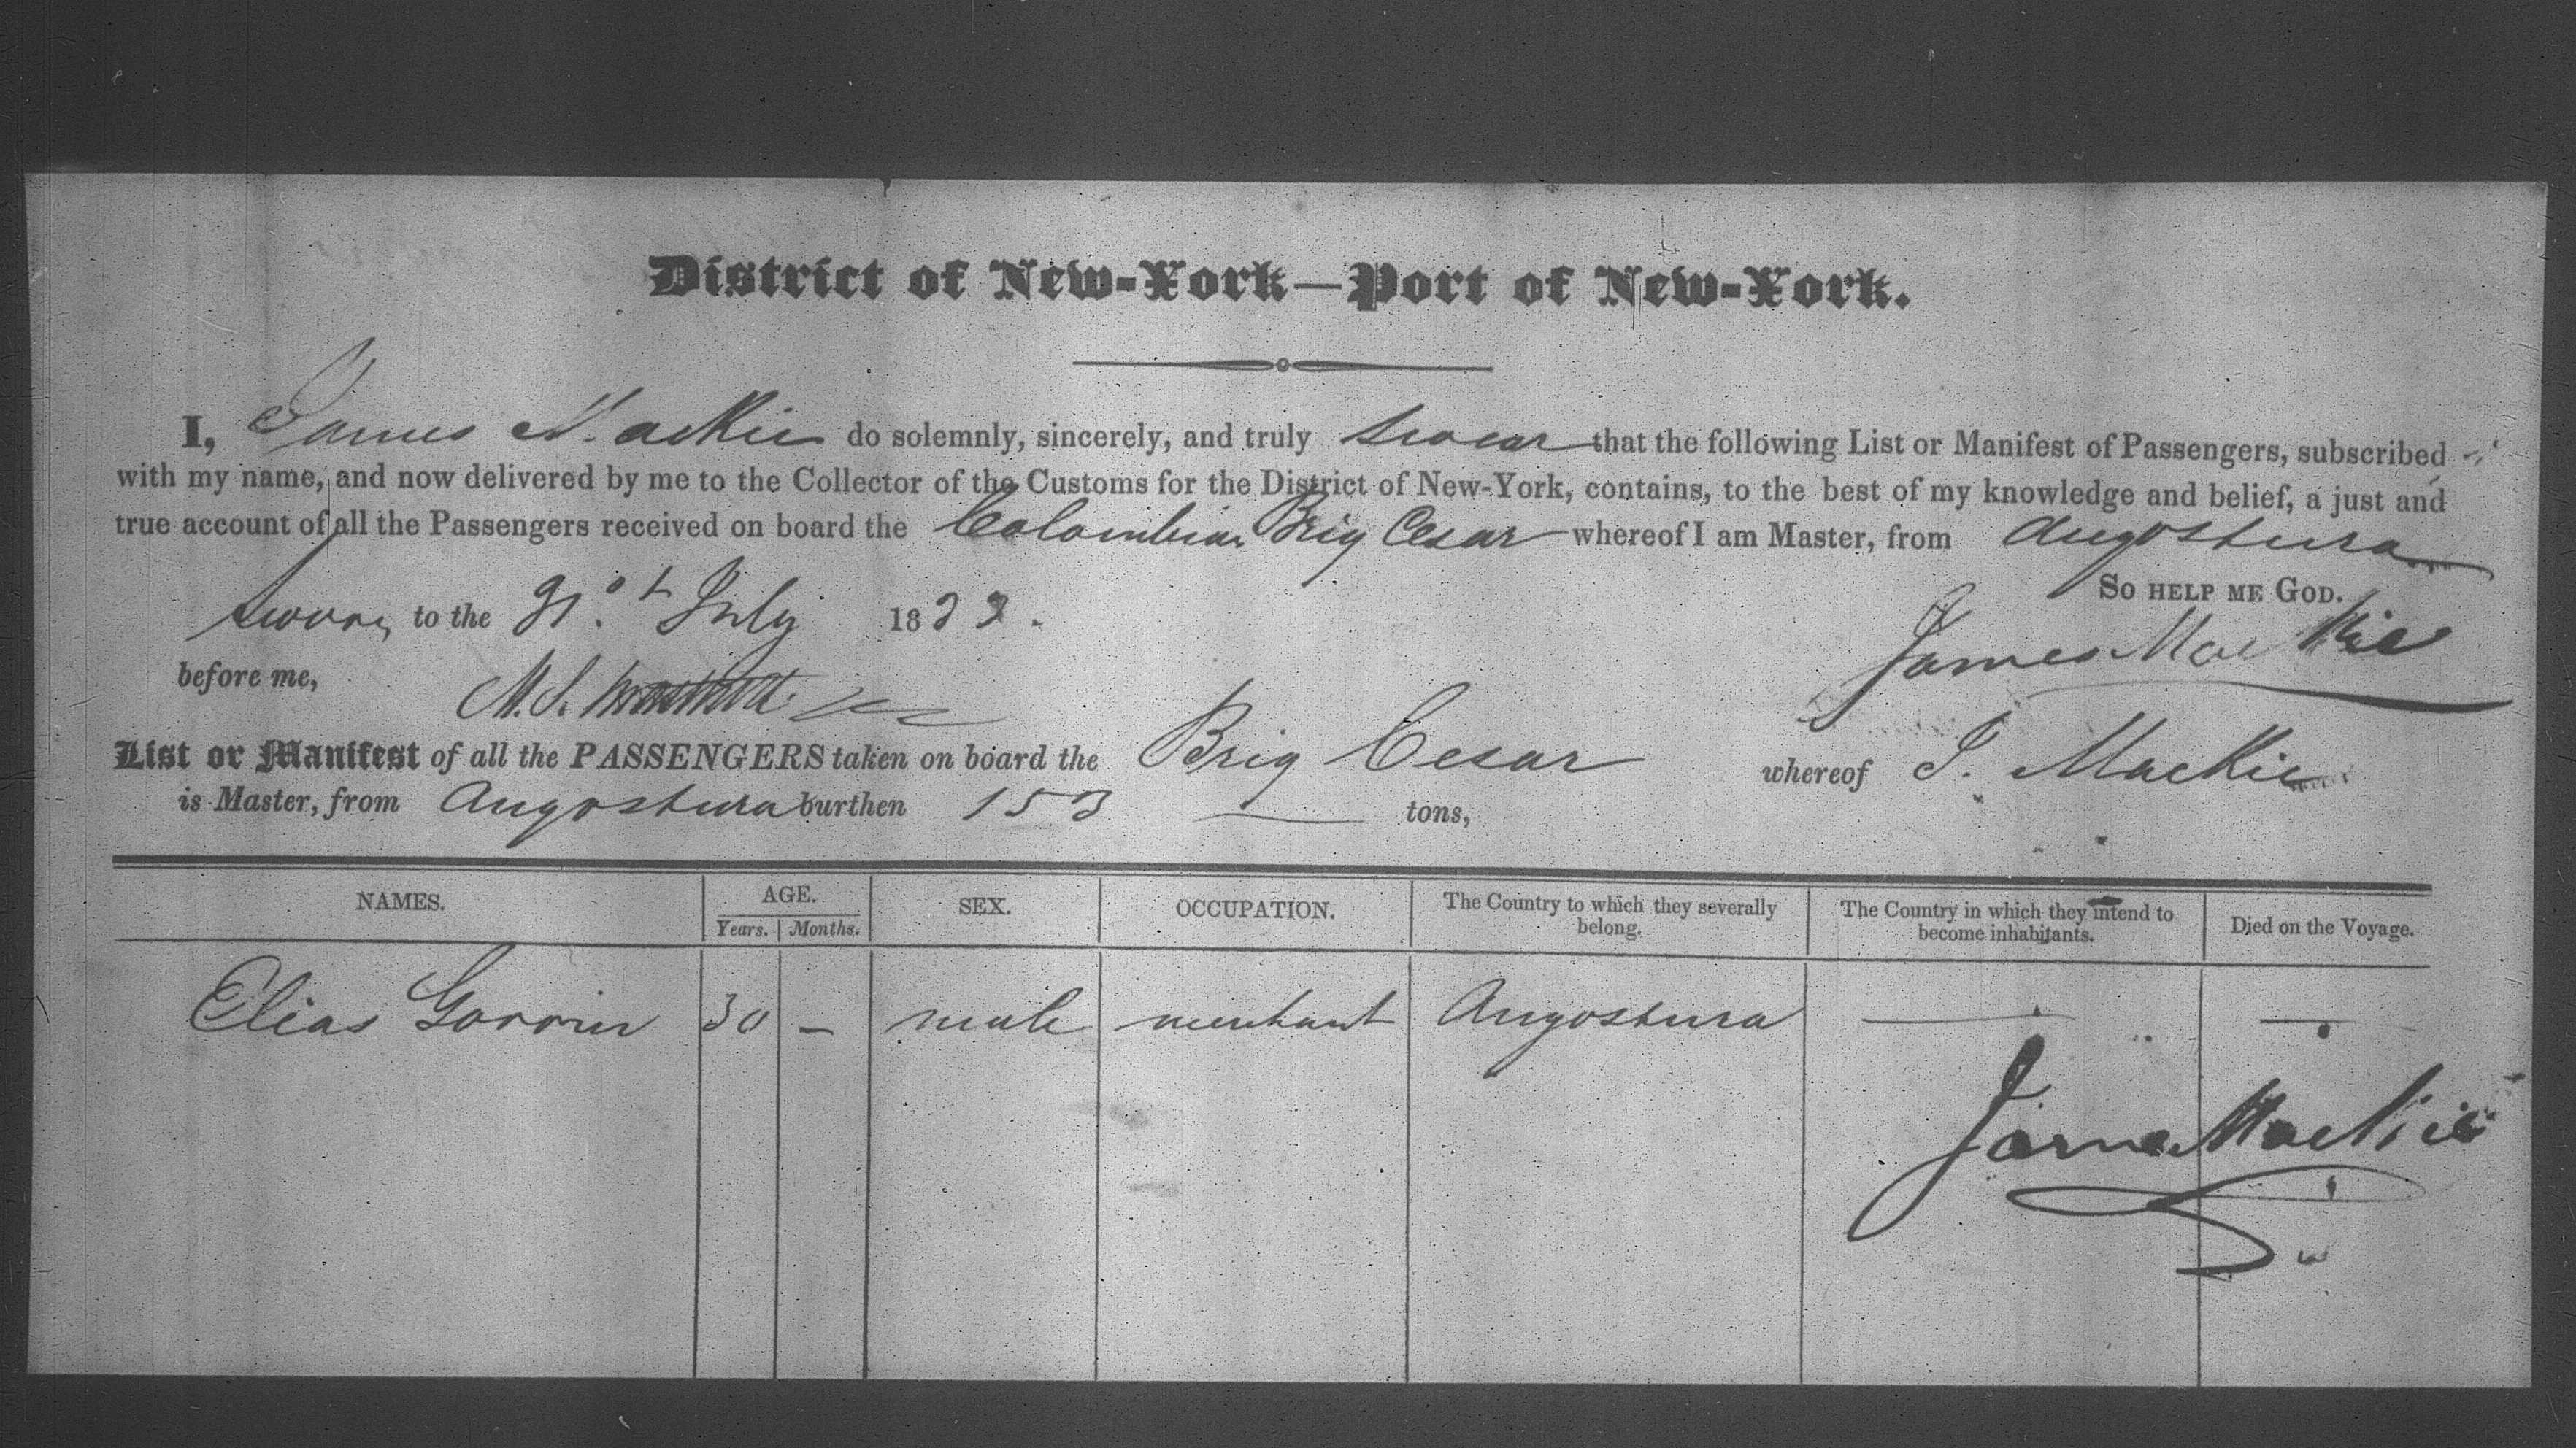 District of New-York—Port of New-York.
I, James Mackie do solemnly, sincerely, and truly swear that the following List or Manifest of Passengers, subscribed
with my name, and now delivered by me to the Collector of the Customs for the District of New-York, contains, to the best of my knowledge and belief, a just and
true account of all the Passengers received on board the Colombian Brig Cesar whereof I am Master, from Angostura
So help me God.
Sworn to the 31st July 1833.
James MacKie
before me, M. S.
List or Manifest of all the PASSENGERS taken on board the Brig Cesar whereof J. MacKie
is Master, from Angostura burthen 153 tons,
NAMES. AGE. SEX. OCCUPATION. The Country to which they severally belong. The Country in which they intend to become inhabitants. Died on the Voyage.
Years. Months.
Elias Gorrin 30 – male merchant Angostura — —
James MacKie